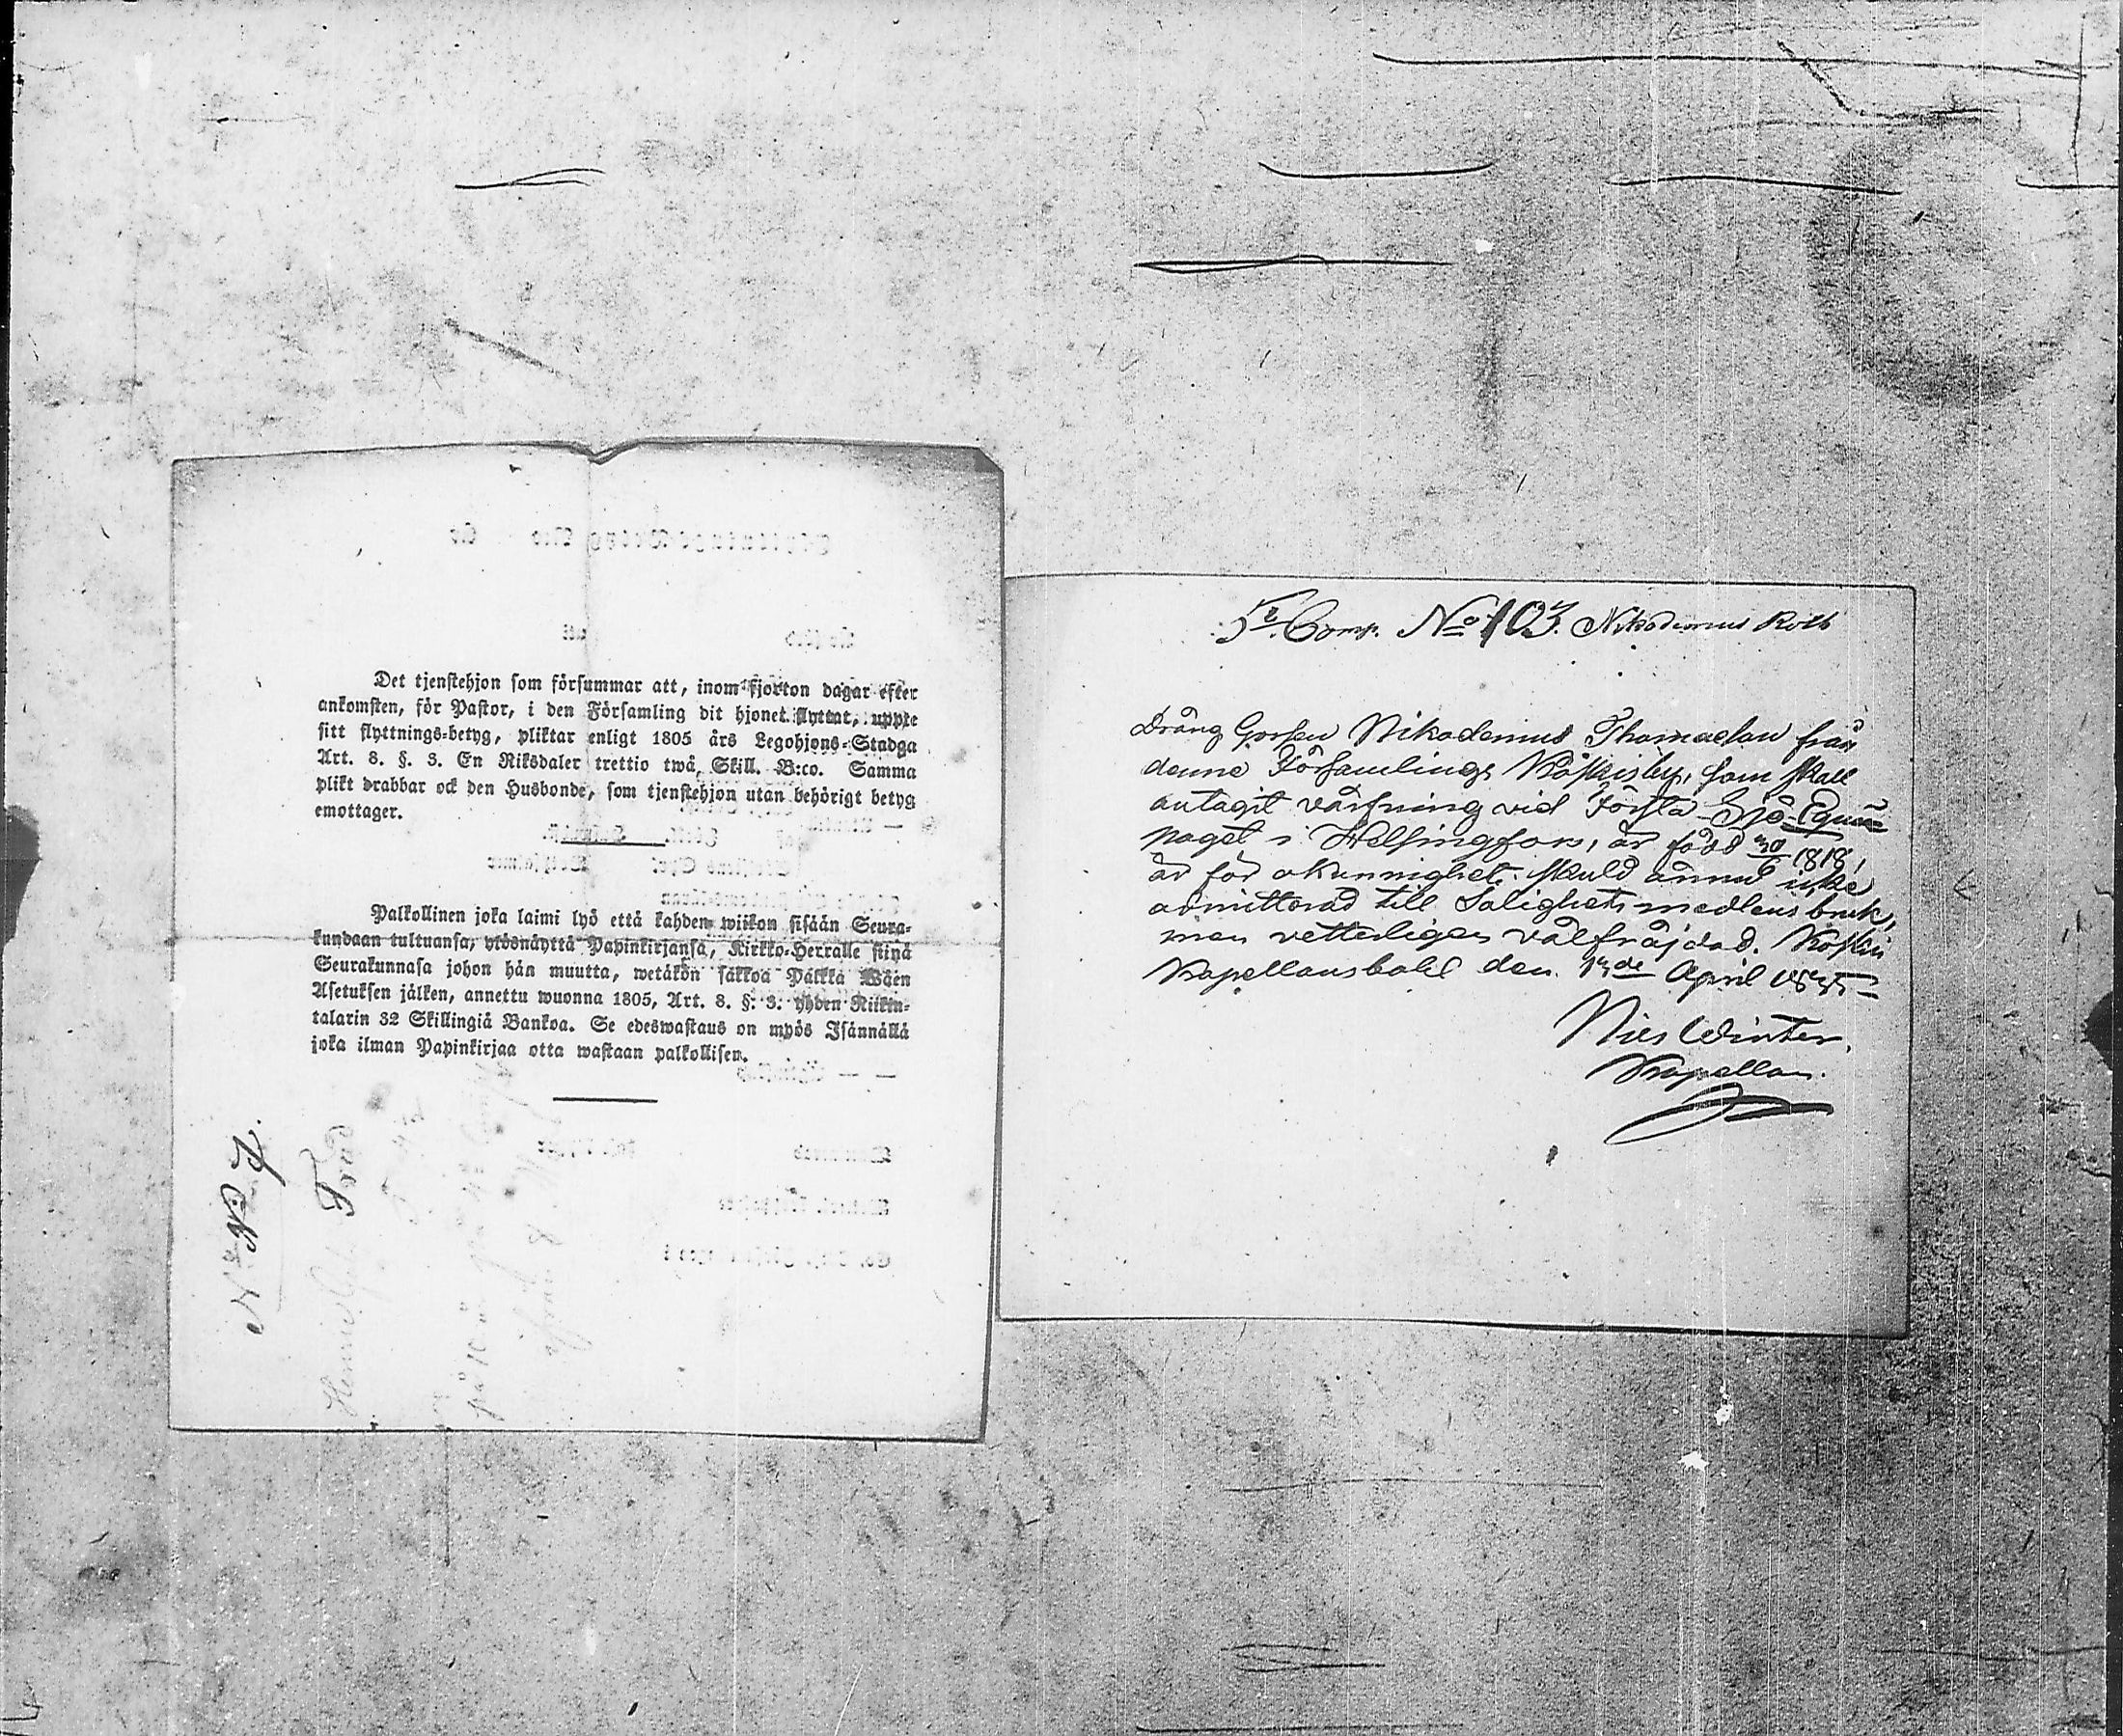 Det tjenstehjon som försummar att, inom fjorton dagar efter
ankomsten, för Pastor, i den Församling dit hjonet flyttat, uppte
sitt flyttnings-betyg, pliktar enligt 1805 års Legohjons-Stadga
Art. 8. §. 3. En Riksdaler trettio twå Skill. B:co. Samma
plikt drabbar ock den Husbonde, som tjenstehjon utan behörigt betyg
emottager.
Palkollinen joka laimi lyö että kahden wiikon sisään Seura-
kundaan tultuansa, ylösnäyttä Papinkirjansa, Kirkko-Herralle siinä
Seurakunnasa johon hän muutta, wetäkön sakkoa Palkka Wäen
Asetuksen jälken, annettu wuonna 1805, Art. 8. §. 3. yhden Riikin-
talarin 32 Skillingiä Bankoa. Se edeswastaus on myös Isännällä
joka ilman Papinkirjaa otta wastaan palkollisen.
5te Comp. No 103. Nikodemus Roth
Dräng Gossen Nikodemus Thomasson från
denne Församlings Koskisby, som skall
antagit värfning vid Första Sjö-Equi-
paget i Helsingfors, är född 30/6 1818,
är för okunnighets skuld ännu icke
admitterad till Salighets medlens bruk,
men vetterligen välfräjdad. Koskis
Kapellansbohl den 13de April 1835
Nies Winter.
Kapellan.